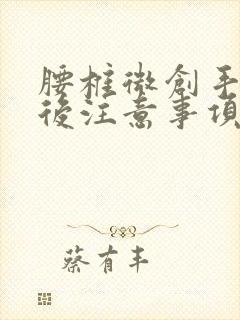 腰椎微創手
後注意事項
蔡有丰